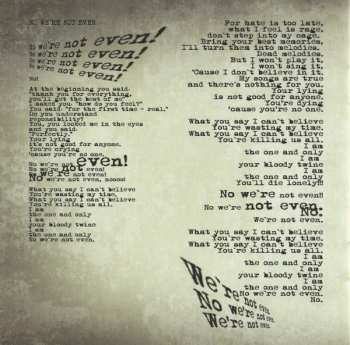 NO, WE'RE NOT EVEN.
No we're not even!
No we're not even!
No we're not even!
No we're not even!
But
At the beginning you said,
"thank you for everything,
you'll get the best of me".
I asked you, "how do you feel?"
You said "for the first time - real."
Do you understand
responsibility?
You, you looked me in the eyes
and you said
"Perfectly."
Your lying
it's not good for anyone.
You're crying
'cause you're no one,
No we're not even!
No we're not even!
No we're not even, noooo
What you say I can't believe
You're wasting my time.
What you say I can't believe
You're killing us all.
I am
the one and only
I am
your bloody twine
I am
the one and only
No we're not even.
For hate is too late,
what I feel is rage,
don't step into my cage.
Bring your best memories,
I'll turn them into melodies.
Dead melodies.
But I won't play it,
I won't sing it.
'Cause I don't believe in it.
My songs are true
and there's nothing for you.
Your lying
is not good for anyone.
You're dying
'cause you're no one.
What you say I can't believe
You're wasting my time.
What you say I can't believe
You're killing us all.
I am
the one and only
I am
your bloody twine
I am
the one and only
You'll die Lonely!!!
No we're not even!!
No we're not even.
No.
We're not even.
What you say I can't believe
You're wasting my time.
What you say I can't believe
You're killing us all.
I am
the one and only
I am
your bloody twine
I am
the one and only
No we're not even.
No.
We're not even.
No we're not even.
We're not even.